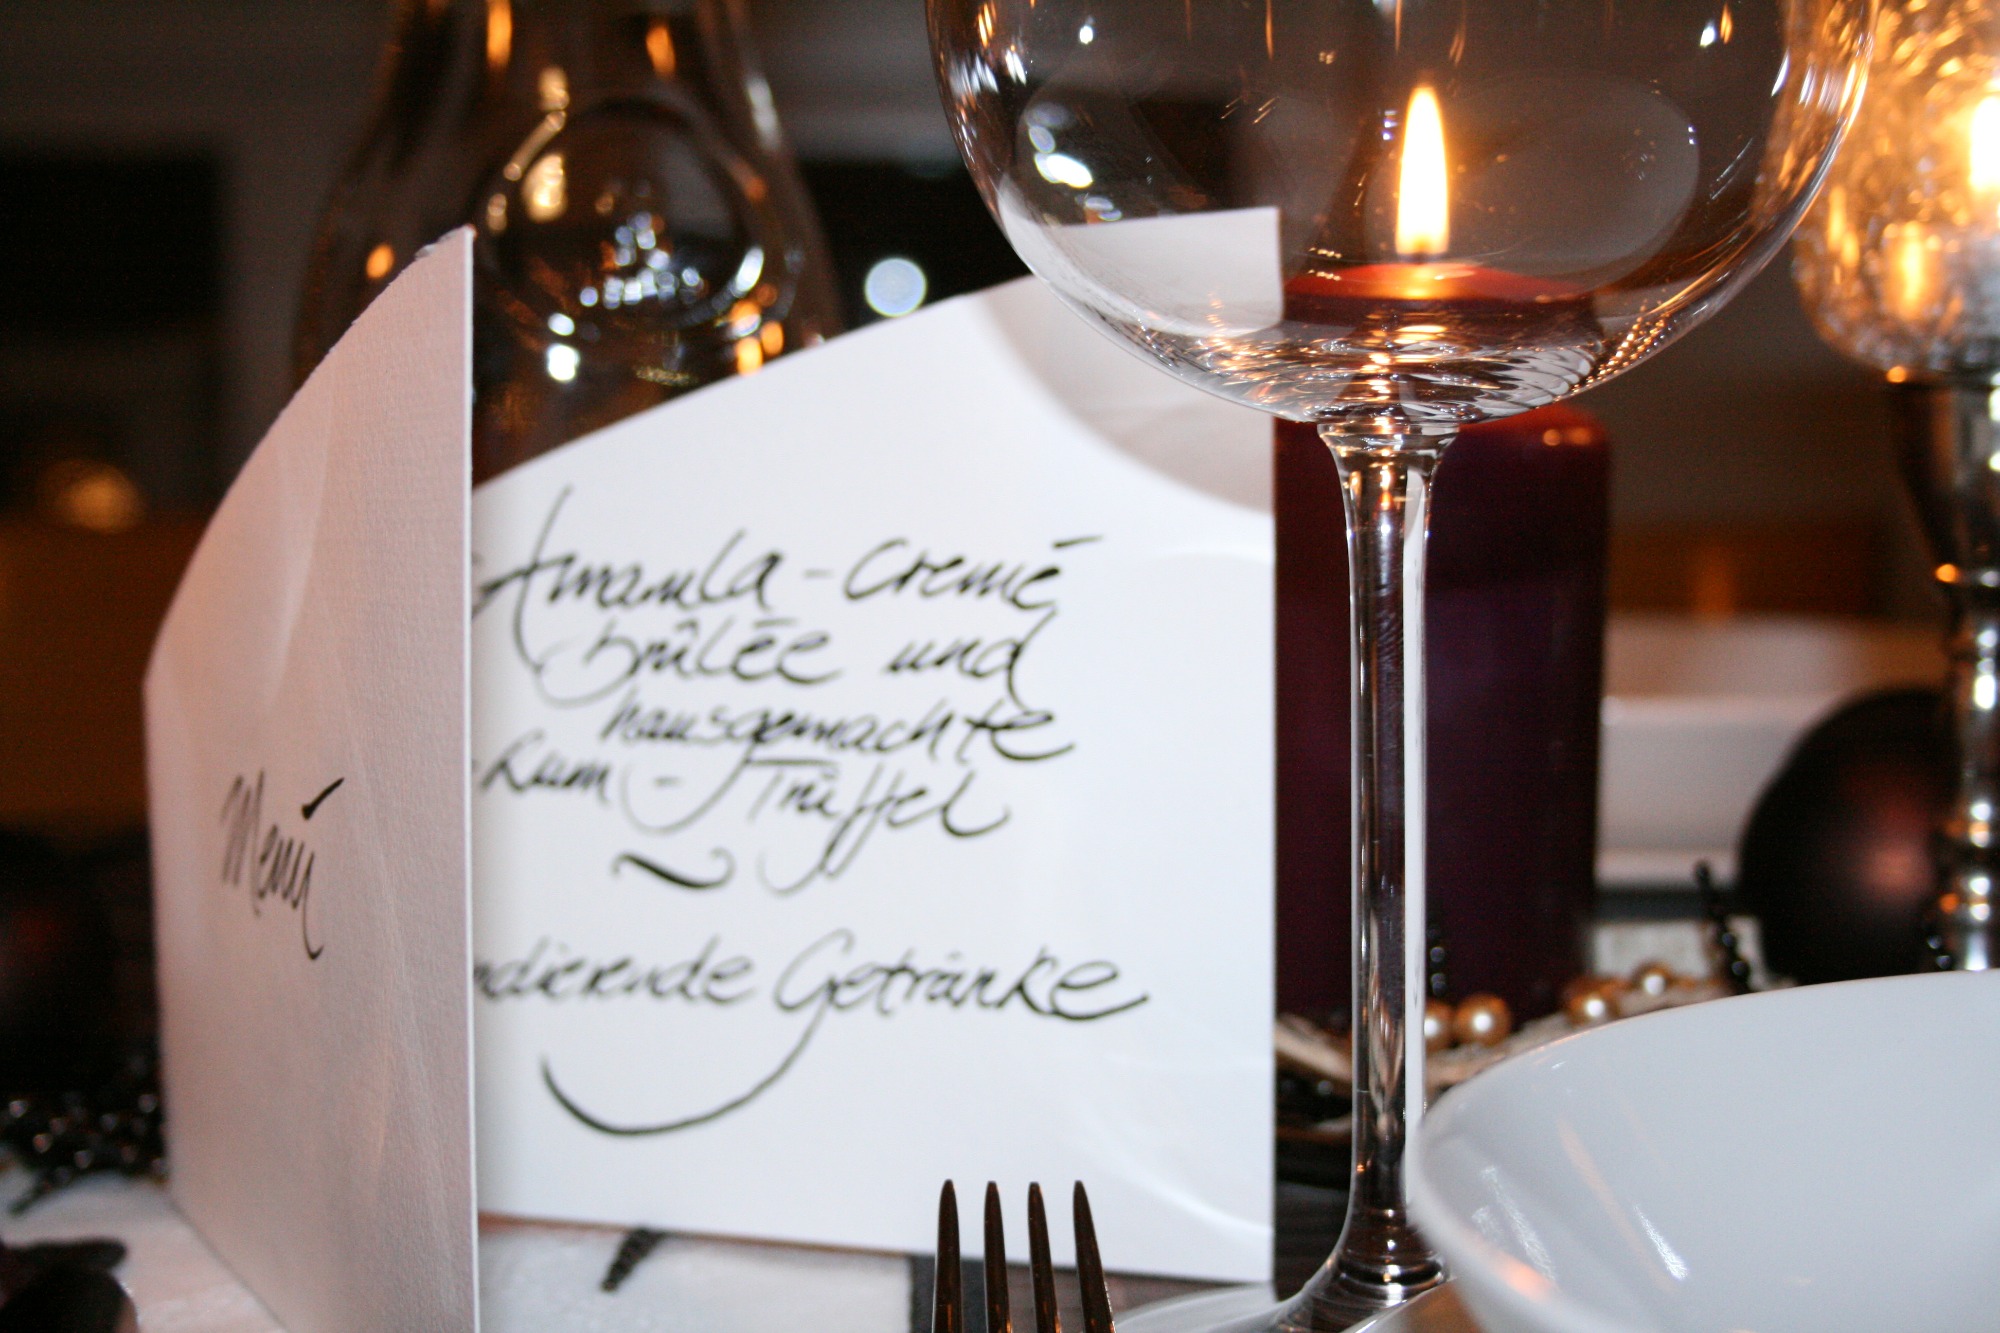 Menü
Amarula - Cremé
brûlée und
hausgemachte
Rum - Trüffel
~
ndierende Getränke